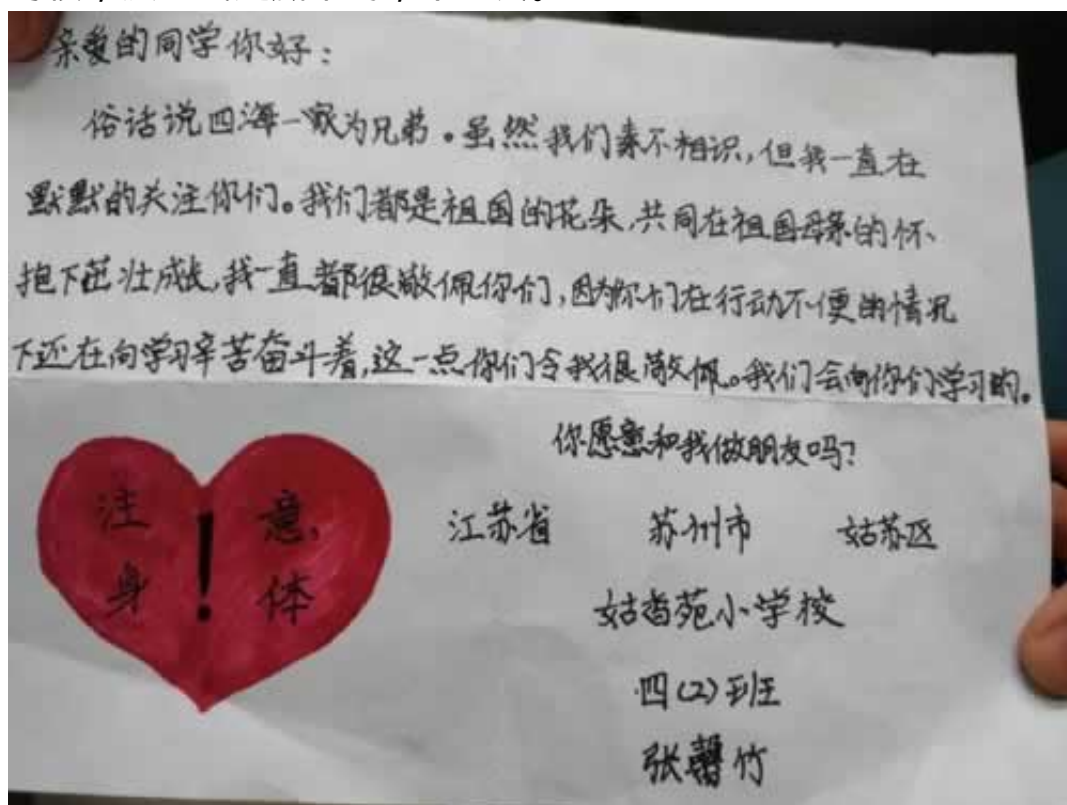 亲爱的同学你好：
俗话说四海一家为兄弟。虽然我们素不相识，但我一直在
默默的关注你们。我们都是祖国的花朵，共同在祖国母亲的怀
抱下茁壮成长，我一直都很敬佩你们，因为你们在行动不便的情况
下还在向学习辛苦奋斗着，这一点你们令我很敬佩。我们会向你们学习的。
你愿意和我做朋友吗？
注！意，
身 体
江苏省 苏州市 姑苏区
姑香苑小学校
四(2)班
张馨竹